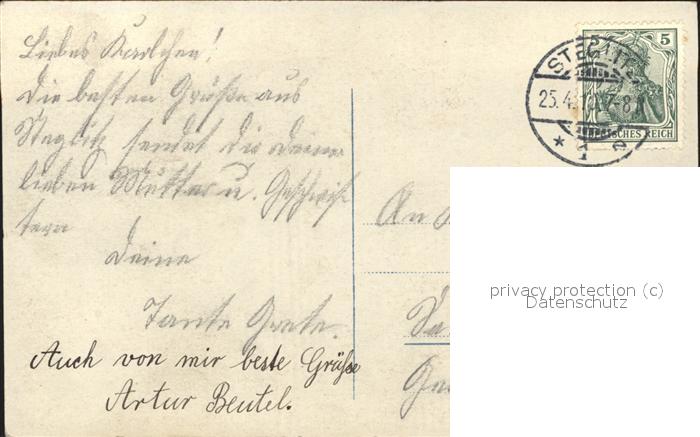 Liebes Karlchen!
Die besten Grüße aus
Steglitz sendet dir deine
lieben Mutter u. Geschwis
tern
Deine
Tante Grete.
Auch von mir beste Grüsse
Artur Beutel.
An
STEGLITZ
25.4. 7-8
* 1
5 5
DEUTSCHES REICH
privacy protection (c)
Datenschutz